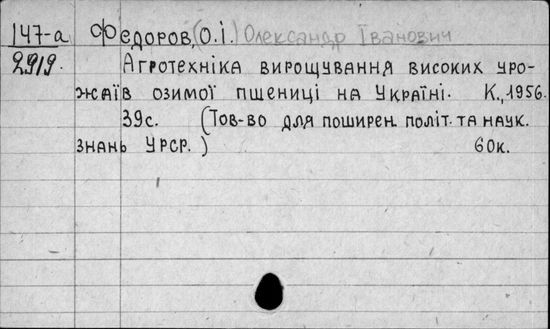 147-а Федоров, (О.І.) Олександр Іванович
2919. Агротехніка вирощування високих уро-
жаїв озимої пшениці на Україні. К., 1956.
39с. (Тов-во для поширен. політ. та наук.
знань УРСР.) 60к.